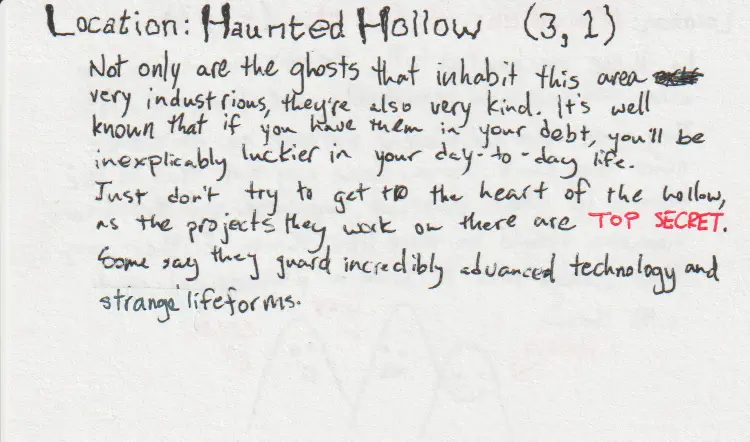 Location: Haunted Hollow (3, 1)
Not only are the ghosts that inhabit this area
very industrious, they're also very kind. It's well
known that if you have them in your debt, you'll be
inexplicably luckier in your day-to-day life.
Just don't try to get to the heart of the hollow,
as the projects they work on there are TOP SECRET.
Some say they guard incredibly advanced technology and
strange lifeforms.